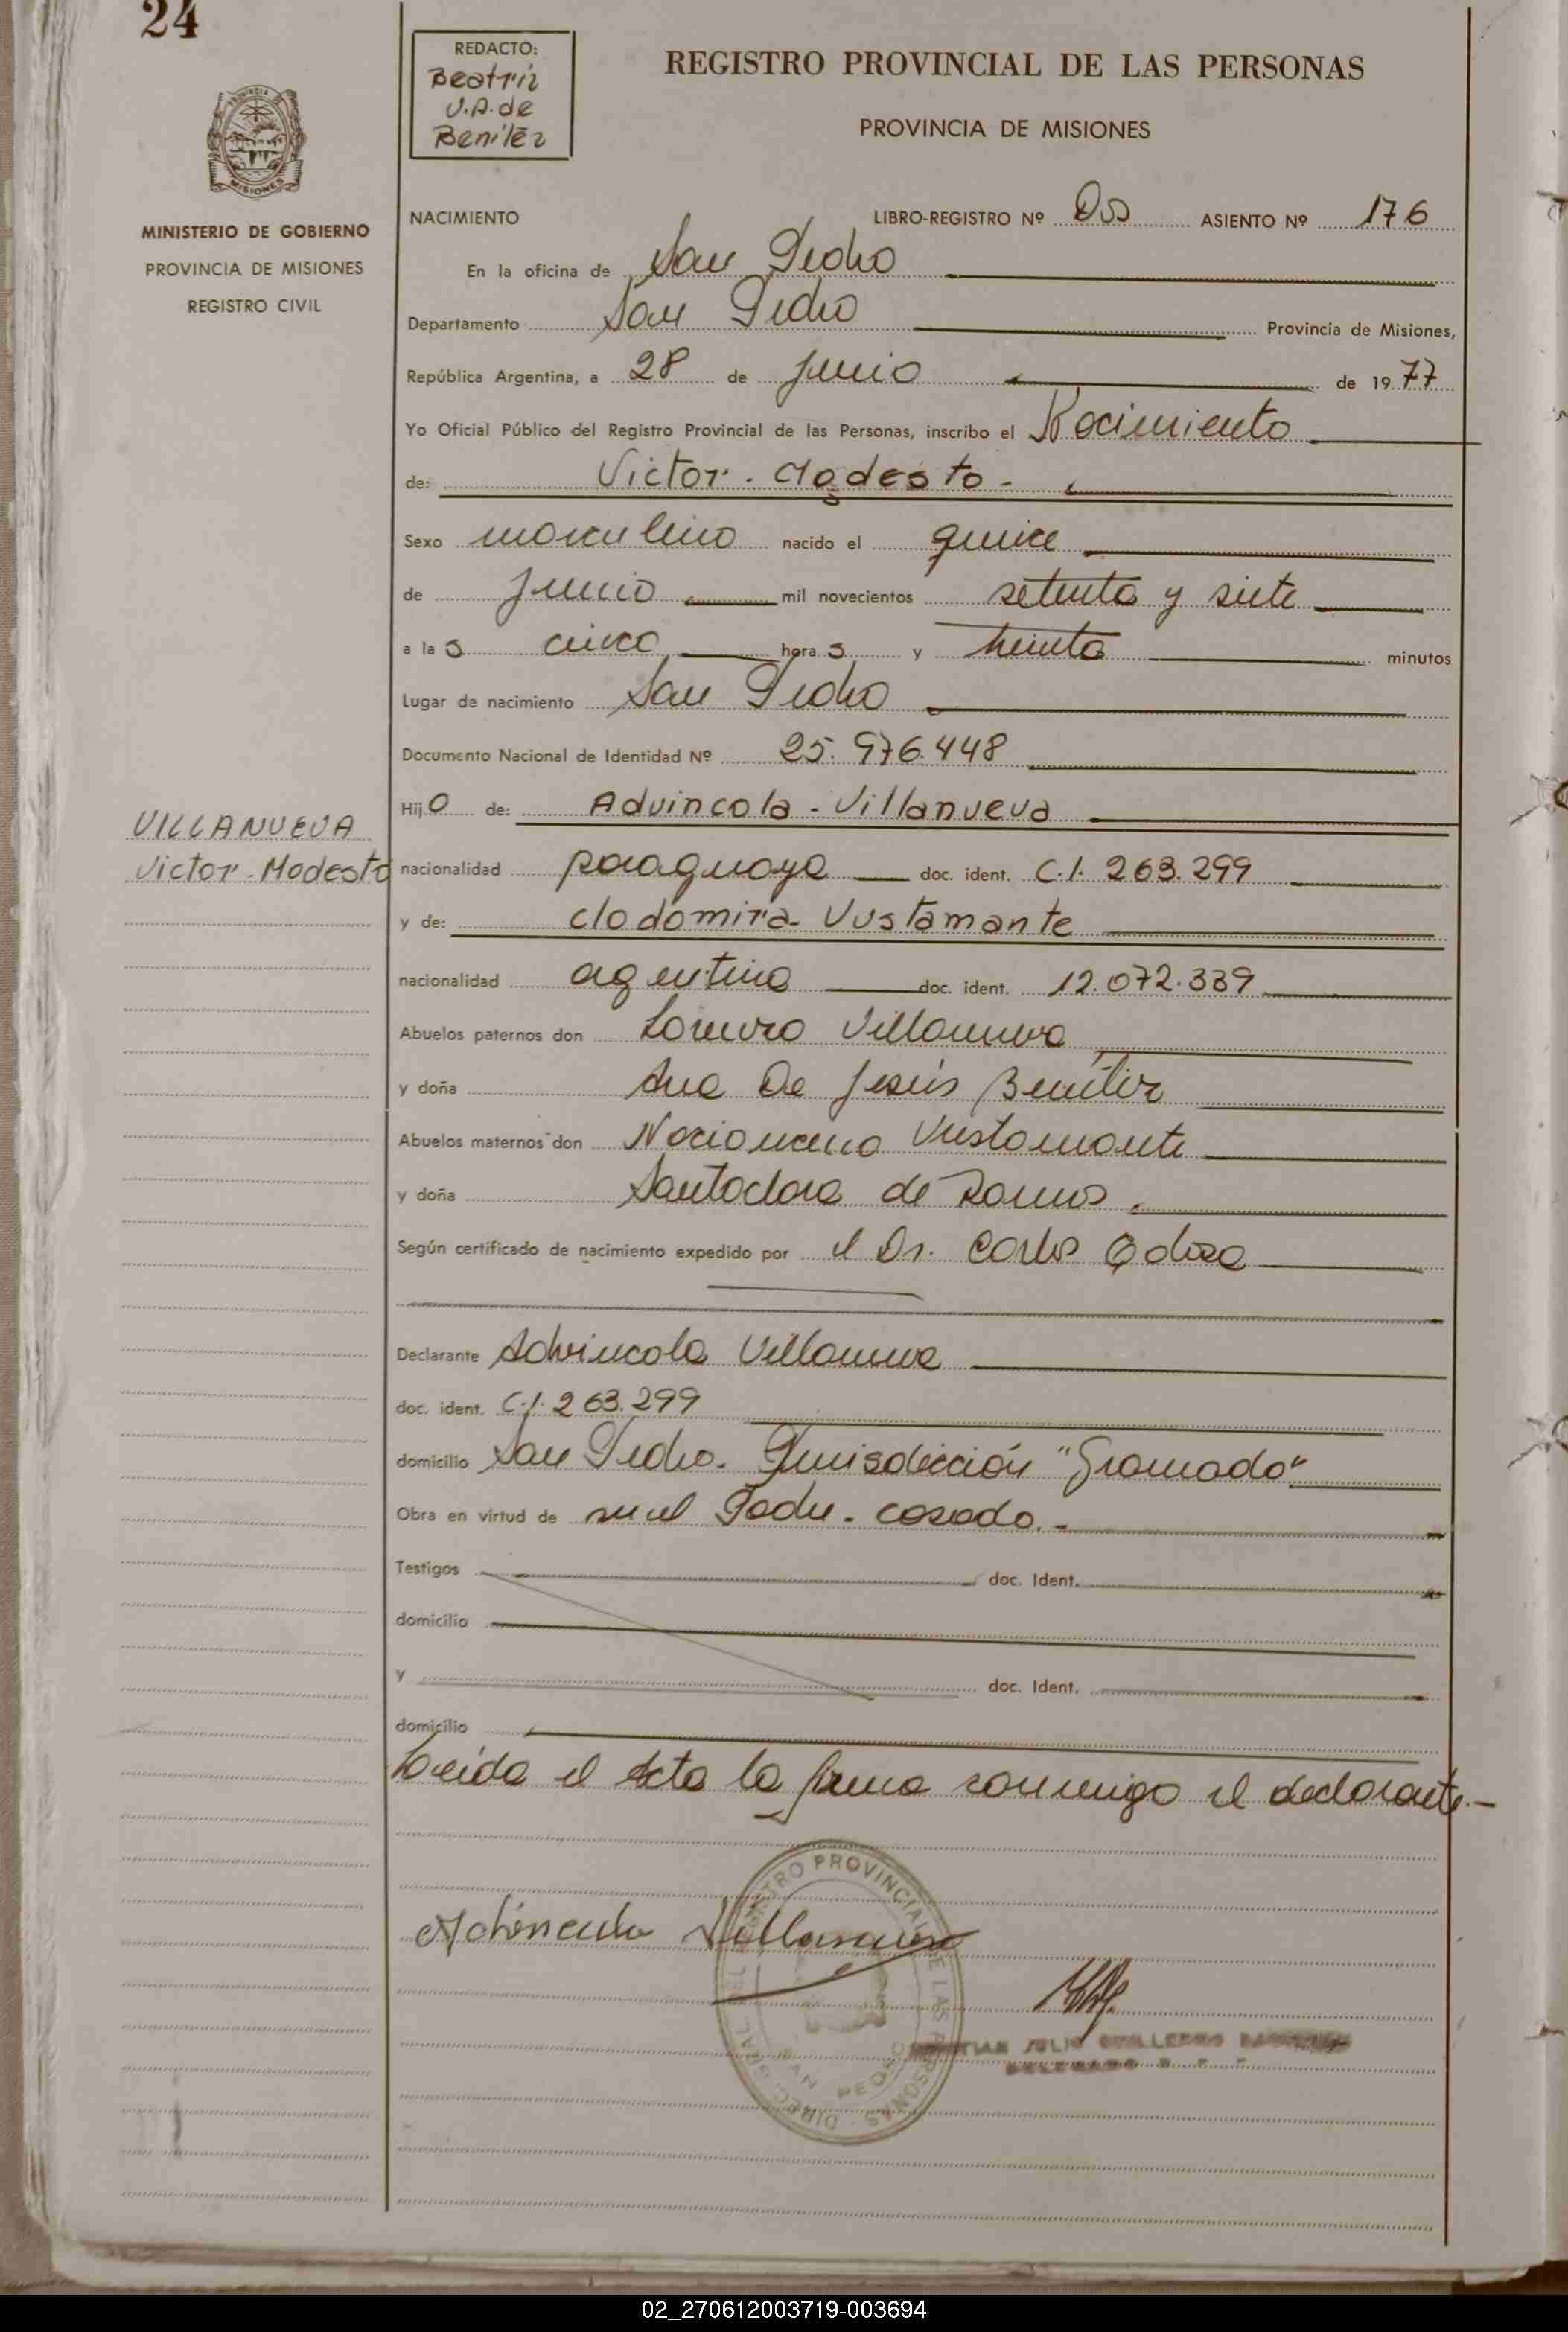 24
REDACTO:
Beatriz
V.A. de
Benitez
REGISTRO PROVINCIAL DE LAS PERSONAS
PROVINCIA DE MISIONES
MISIONES
MINISTERIO DE GOBIERNO
PROVINCIA DE MISIONES
REGISTRO CIVIL
NACIMIENTO LIBRO-REGISTRO Nº Dos ASIENTO Nº 176
En la oficina de San Pedro
Departamento San Pedro Provincia de Misiones,
República Argentina, a 28 de junio de 1977
Yo Oficial Público del Registro Provincial de las Personas, inscribo el Nacimiento
de: Victor - Modesto -
Sexo masculino nacido el quince
de junio mil novecientos setenta y siete
a las cinco horas y treinta minutos
Lugar de nacimiento San Pedro
Documento Nacional de Identidad Nº 25.976.448
Hijo de: Advincola - Villanueva
VILLANUEVA
Victor - Modesto
nacionalidad paraguaya doc. ident. C.I. 263.299
y de: Clodomira - Vustamante
nacionalidad agentina doc. ident. 12.072.339
Abuelos paternos don Lorenzo Villanueva
y doña Ana De Jesús Benítez
Abuelos maternos don Vustamante
y doña Santaclara de Ramos
Según certificado de nacimiento expedido por el Dr. Carlos
Declarante Advincola Villanueva
doc. ident. C.I. 263.299
domicilio San Pedro. Jurisdicción "Gramado"
Obra en virtud de ser el Padre - casado. -
Testigos doc. Ident.
domicilio
y doc. Ident.
domicilio
Leida el Acta la firma conmigo el declarante. -
Villanueva
REGISTRO PROVINCIAL DE LAS PERSONAS
SAN PEDRO
JULIO GUILLERMO
DELEGADO
02_270612003719-003694